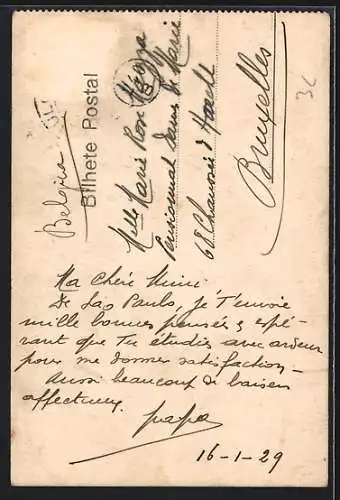 Bilhete Postal
Belgica
Mlle Marie Rose
Pensionnat Dames de Marie
68 Chaussée d'Haecht
Bruxelles
3c
Ma chère Mimi
De Sao Paulo, je t'envoie
mille bonnes pensées, espé-
rant que tu étudies avec ardeur
pour me donner satisfaction -
Aussi beaucoup de baisers
affectueux.
papa
16-1-29